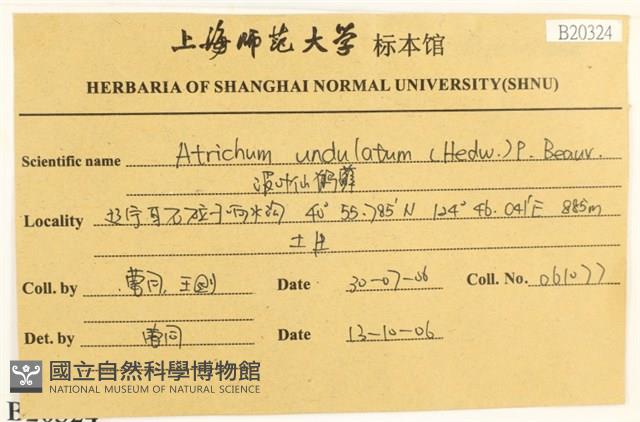 上海师范大学 标本馆
B20324
HERBARIA OF SHANGHAI NORMAL UNIVERSITY(SHNU)
Scientific name Atrichum undulatum (Hedw.) P. Beauv.
波叶仙鹤藓
Locality 辽宁 40° 55.785′N 124° 46.041′E 885m
土生
Coll. by 曹同, 王剑 Date 30-07-06 Coll. No. 061077
Det. by 曹同 Date 13-10-06
國立自然科學博物館
NATIONAL MUSEUM OF NATURAL SCIENCE
B20324